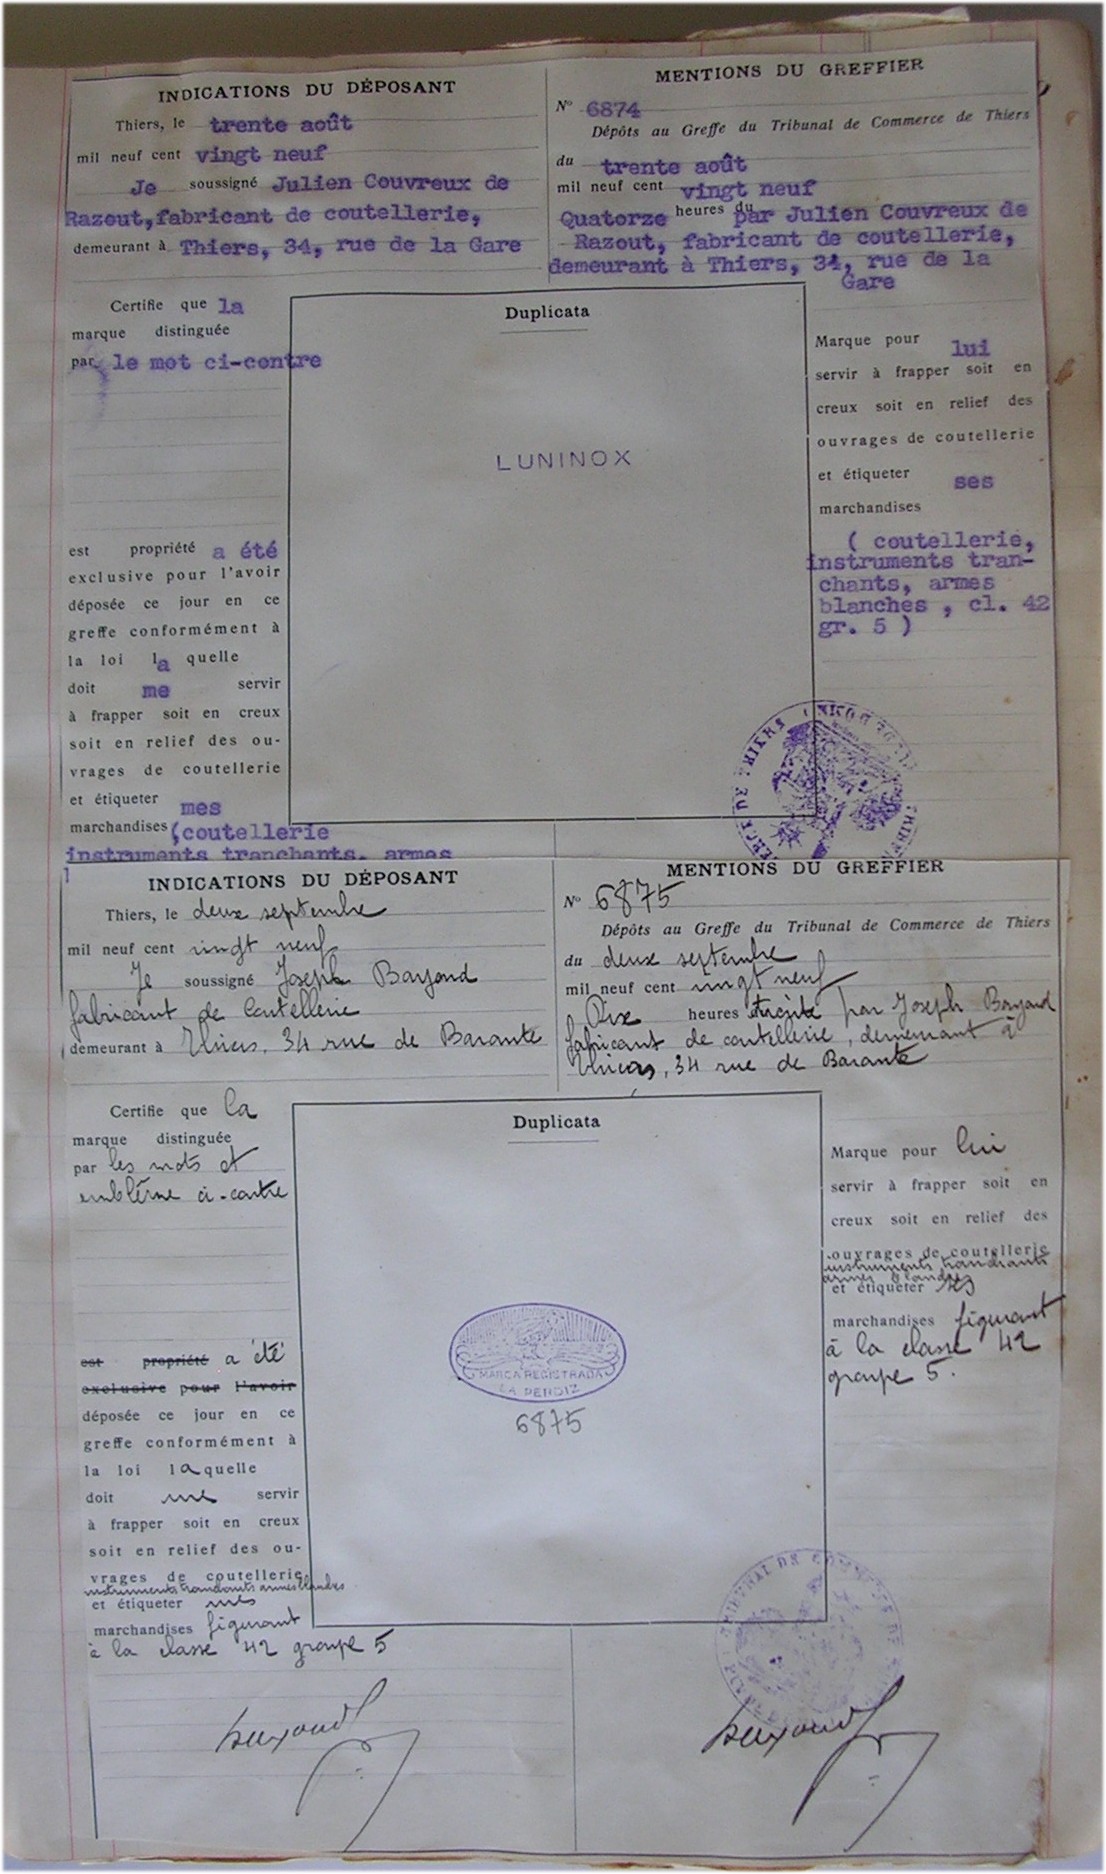 INDICATIONS DU DÉPOSANT
Thiers, le trente août
mil neuf cent vingt neuf
Je soussigné Julien Couvreux de
Razout, fabricant de coutellerie,
demeurant à Thiers, 34, rue de la Gare
MENTIONS DU GREFFIER
N° 6874
Dépôts au Greffe du Tribunal de Commerce de Thiers
du trente août
mil neuf cent vingt neuf
Quatorze heures du par Julien Couvreux de
Razout, fabricant de coutellerie,
demeurant à Thiers, 34, rue de la
Gare
Certifie que la
marque distinguée
par le mot ci-contre
est propriété a été
exclusive pour l'avoir
déposée ce jour en ce
greffe conformément à
la loi la quelle
doit me servir
à frapper soit en creux
soit en relief des ou-
vrages de coutellerie
et étiqueter mes
marchandises (coutellerie
instruments tranchants, armes
Duplicata
LUNINOX
Marque pour lui
servir à frapper soit en
creux soit en relief des
ouvrages de coutellerie
et étiqueter ses
marchandises
( coutellerie,
instruments tran-
chants, armes
blanches , cl. 42
gr. 5 )
INDICATIONS DU DÉPOSANT
Thiers, le deux septembre
mil neuf cent vingt neuf
Je soussigné Joseph Bayond
fabricant de Coutellerie
demeurant à Thiers, 34 rue de Barante
MENTIONS DU GREFFIER
N° 6875
Dépôts au Greffe du Tribunal de Commerce de Thiers
du deux septembre
mil neuf cent vingt neuf
Dix heures trente par Joseph Bayond
fabricant de coutellerie, demeurant à
Thiers, 34 rue de Barante
Certifie que la
marque distinguée
par les mots et
emblême ci-contre
est propriété a été
exclusive pour l'avoir
déposée ce jour en ce
greffe conformément à
la loi laquelle
doit me servir
à frapper soit en creux
soit en relief des ou-
vrages de coutellerie
instruments tranchants armes blanches
et étiqueter mes
marchandises figurant
à la classe 42 groupe 5
Duplicata
MARCA REGISTRADA
LA PERDIZ
6875
Marque pour lui
servir à frapper soit en
creux soit en relief des
ouvrages de coutellerie
instruments tranchants
armes blanches
et étiqueter ses
marchandises figurant
à la classe 42
groupe 5.